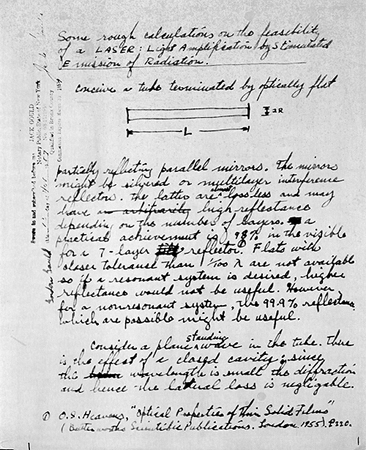 Some rough calculations on the feasibility
of a LASER: Light Amplification by Stimulated
Emission of Radiation.
conceive a tube terminated by optically flat
2R
L
partially reflecting parallel mirrors. The mirrors
might be silvered or multilayer interference
reflectors. The latter are almost lossless and may
have high reflectance
depending on the number of layers. A
practical achievement is 98% in the visible
for a 7-layer reflector. ① Flats with
closer tolerance than 1/100 λ are not available
so if a resonant system is desired, higher
reflectance would not be useful. However
for a nonresonant system, the 99.9% reflectances
which are possible might be useful.
Consider a plane standing wave in the tube. There
is the effect of a closed cavity; since
the wavelength is small the diffraction
and hence the lateral loss is negligable.
① O.S. Heavens, "Optical Properties of Thin Solid Films"
(Butterworths Scientific Publications, London 1955) p.220.
JACK GOULD
Notary Public, State of New York